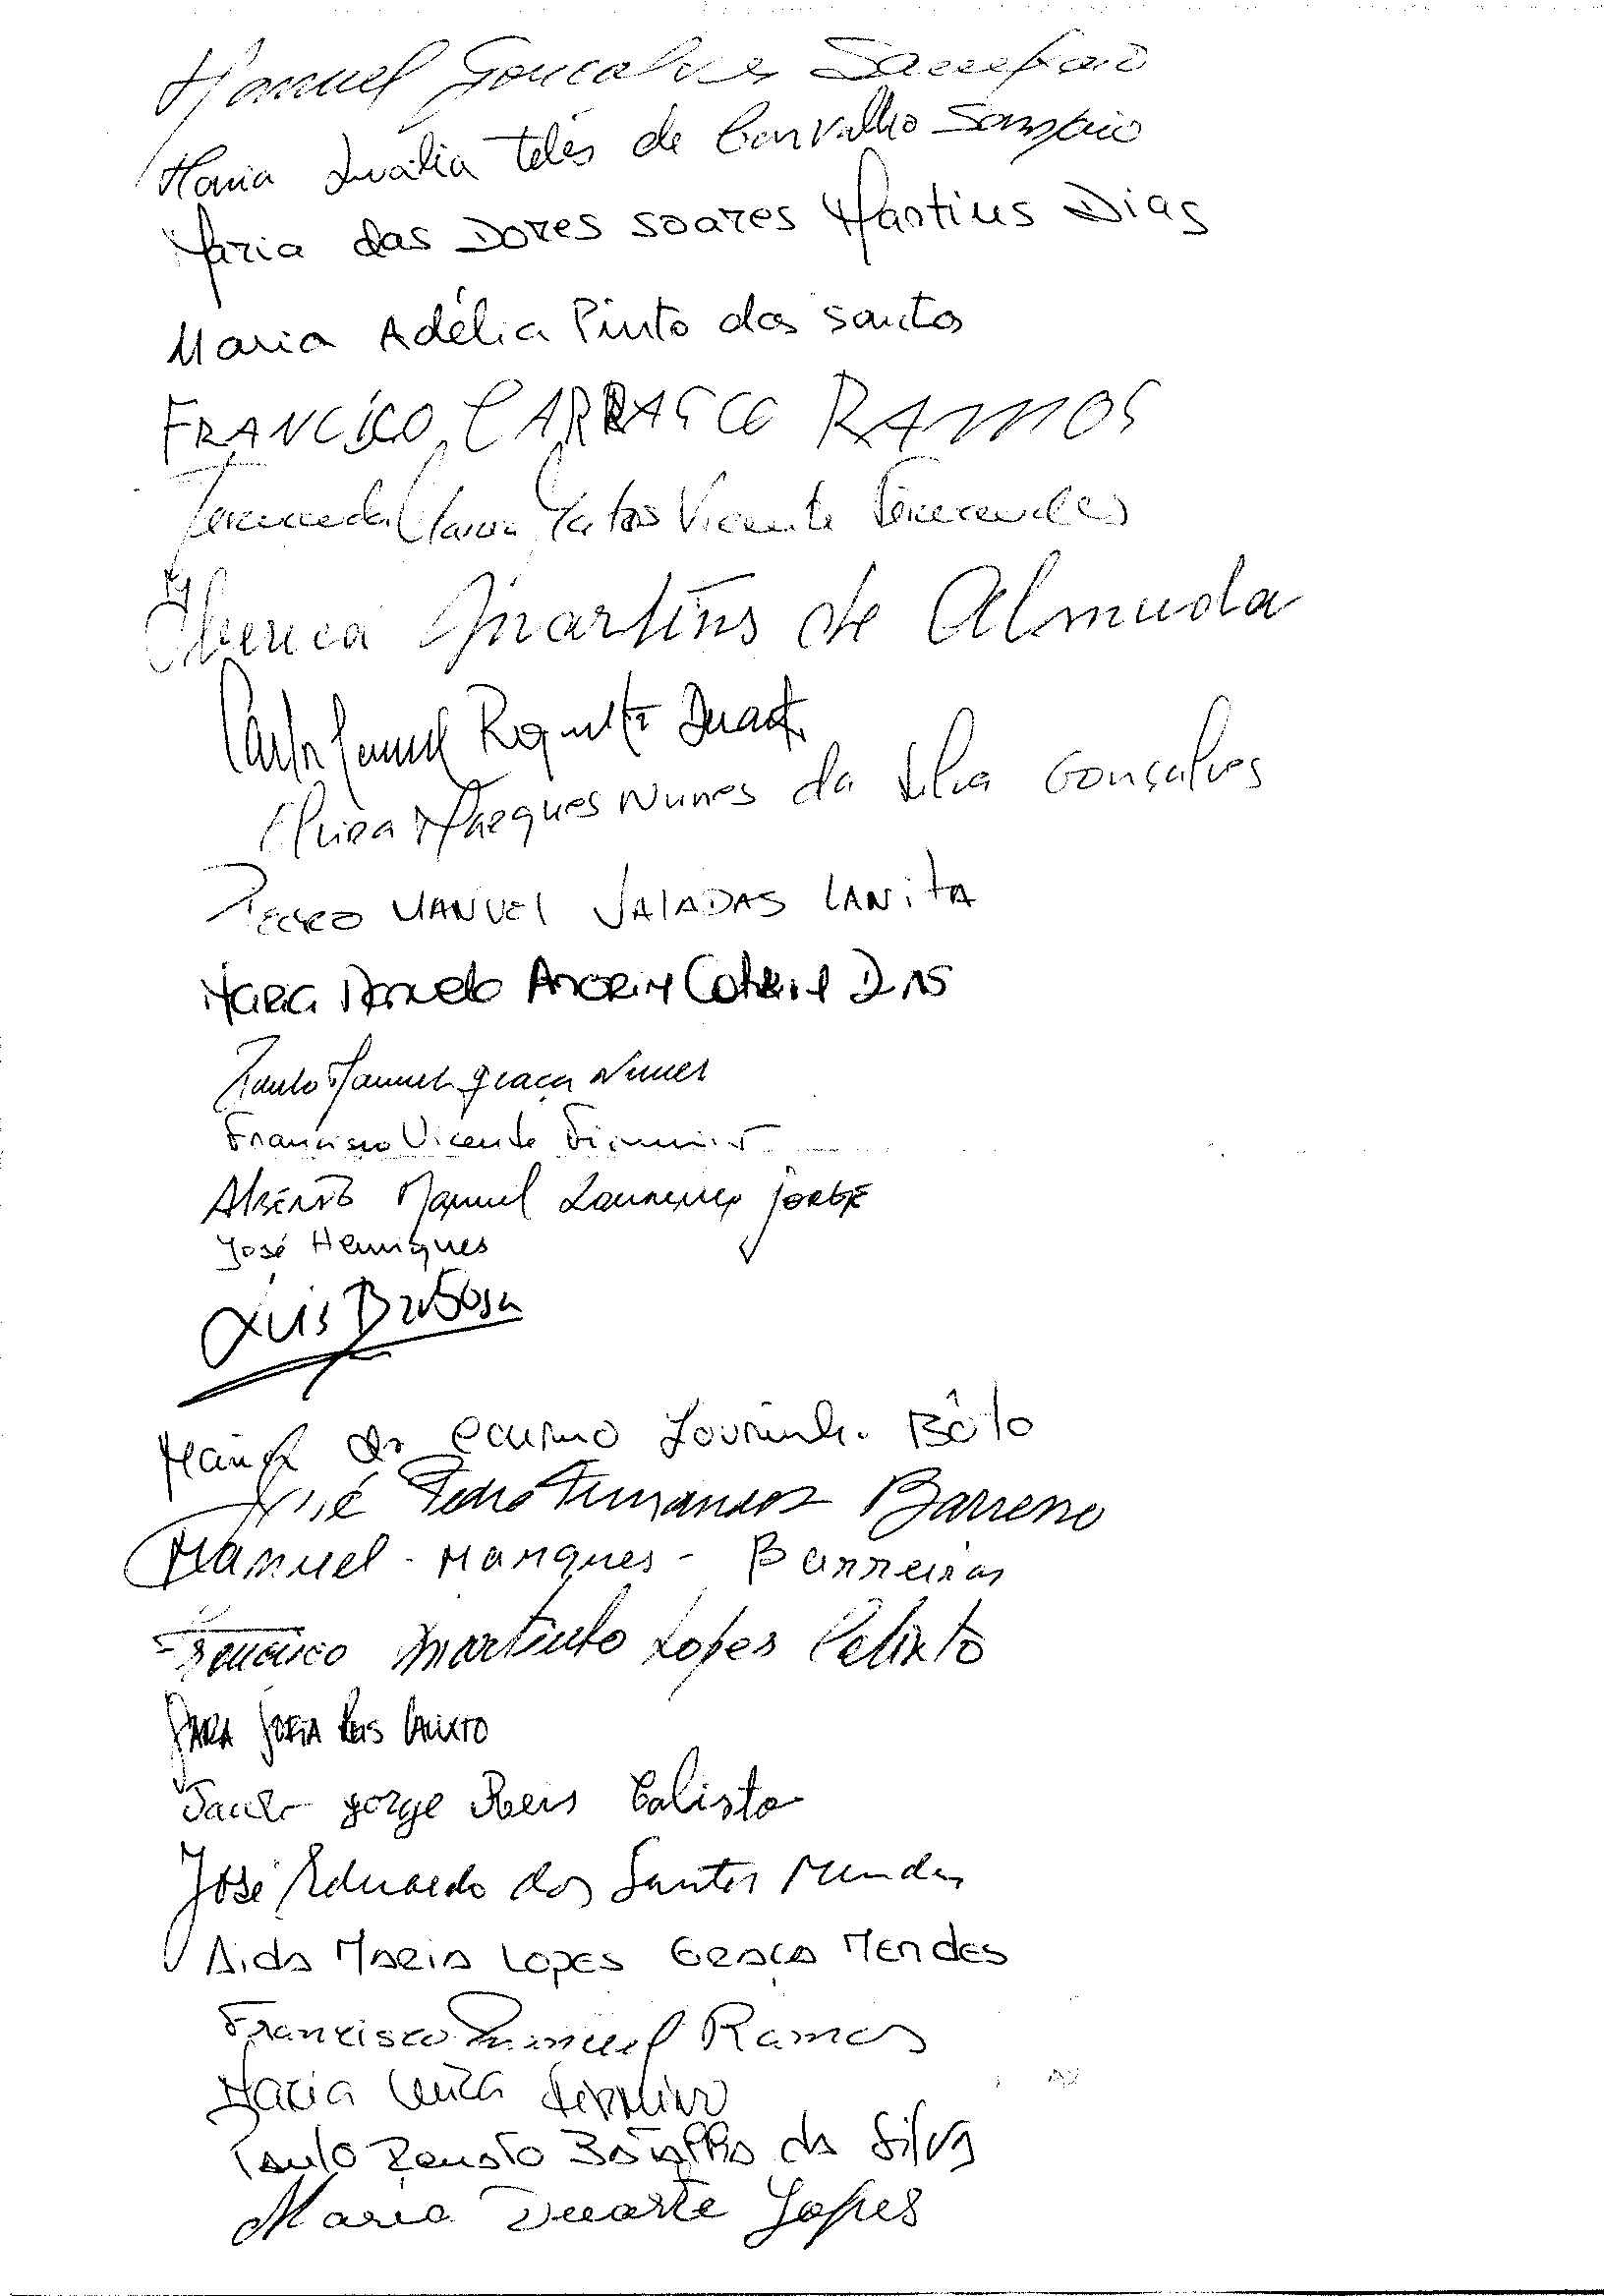 Manuel Gonçalves Sampaio
Maria Amália Teles de Carvalho Sampaio
Maria das Dores Soares Martins Dias
Maria Adélia Pinto dos Santos
FRANCISCO CARRASCO RAMOS
Fernanda Maria Matos Vicente Fernandes
Martins de Almeida
Carlos Manuel Duarte
Elvira Marques Nunes da Silva Gonçalves
PEDRO MANUEL VALADAS CANITA
MARIA AMORIM DIAS
Paulo Manuel Graça Nunes
Francisco Vicente
Alberto Manuel Lourenço JORGE
José Henriques
Luis Barbosa
Maria do Carmo Bôto
José Pedro Fernandes Barreno
Manuel - Marques - Barreiros
Francisco Martinho Lopes Calixto
SARA SOFIA REIS CALIXTO
Jorge Reis Calisto
José Eduardo dos Santos Mendes
Aida MARIA LOPES GRAÇA MENDES
Francisco Manuel Ramos
Maria Luiza Firmino
Paulo Renato Botelho da Silva
Maria Duarte Lopes